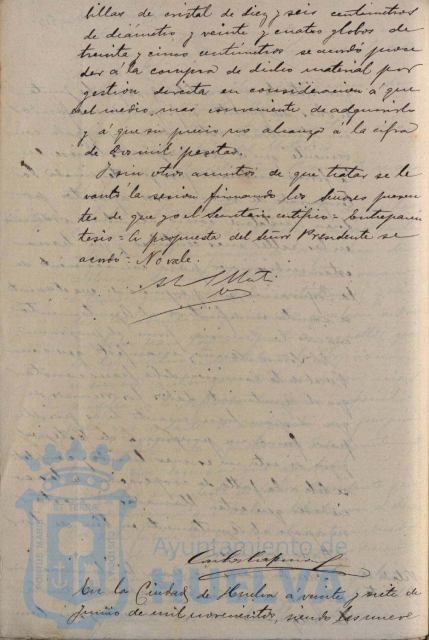 billas de cristal de diez y seis centimetros
de diámetro y veinte y cuatro globos de
treinta y cinco centimetros se acordó proce
der á la compra de dicho material por
gestión directa en consideración á que
el medio mas conveniente de adquirirlo
y á que su precio no alcanza á la cifra
de dos mil pesetas.
Y sin otros asuntos de que tratar se le
vantó la sesion firmando los Señores presen
tes de que yo el Secretario certifico = Entreparen
tesis = A propuesta del Señor Presidente se
acordó = No vale.
Ayuntamiento de
HUELVA
En la Ciudad de Huelva a veinte y siete de
Junio de mil novecientos, siendo las nueve